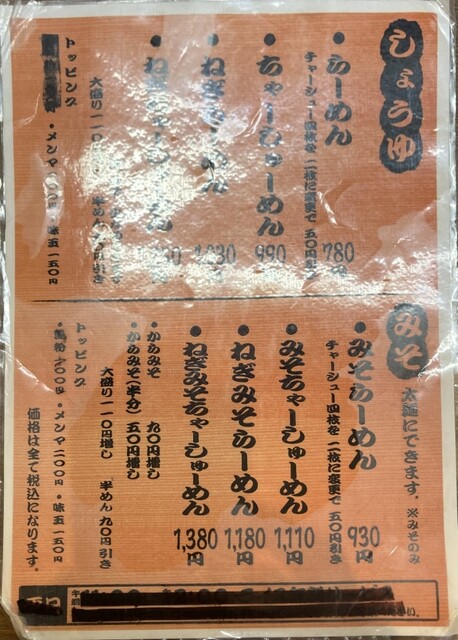 しょうゆ
・らーめん 780円
チャーシュー四枚を 二枚に変更で 五〇円引き
・ちゃーしゅーめん 990
・ねぎらーめん
・ねぎ
大盛り一一〇
半めん 引き
トッピング
・メンマ ・味玉 一五〇円
みそ
太麺にできます。※みそのみ
・みそらーめん 930円
チャーシュー四枚を 二枚に変更で 五〇円引き
・みそちゃーしゅーめん 1,110円
・ねぎみそらーめん 1,180円
・ねぎみそちゃーしゅーめん 1,380円
・からみそ 九〇円増し
・からみそ(半分) 五〇円増し
大盛り一一〇円増し 半めん 九〇円引き
トッピング
・メンマ二〇〇円 ・味玉 一五〇円
価格は全て税込になります。